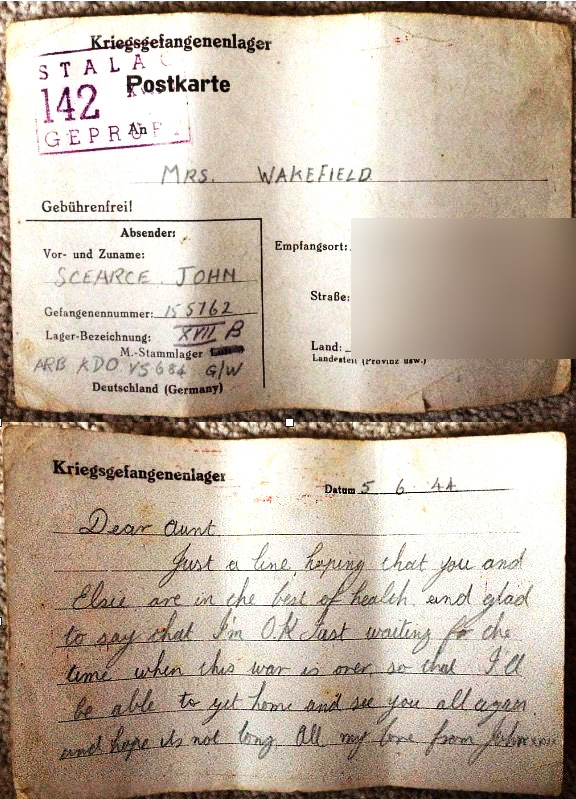 Kriegsgefangenenlager
STALAG
142
Postkarte
An
GEPRÜFT
MRS. WAKEFIELD
Gebührenfrei!
Absender:
Vor- und Zuname:
SCEARCE JOHN
Gefangenennummer: 155762
Lager-Bezeichnung: XVII B
M.-Stammlager
ARB KDO VS684 G/W
Deutschland (Germany)
Empfangsort:
Straße:
Land:
Landesteil (Provinz usw.)
Kriegsgefangenenlager
Datum 5 6 44
Dear Aunt
Just a line hoping that you and
Elsie are in the best of health and glad
to say that I'm O.K Just waiting for the
time when this war is over so that I'll
be able to get home and see you all again
and hope its not long All my love from John